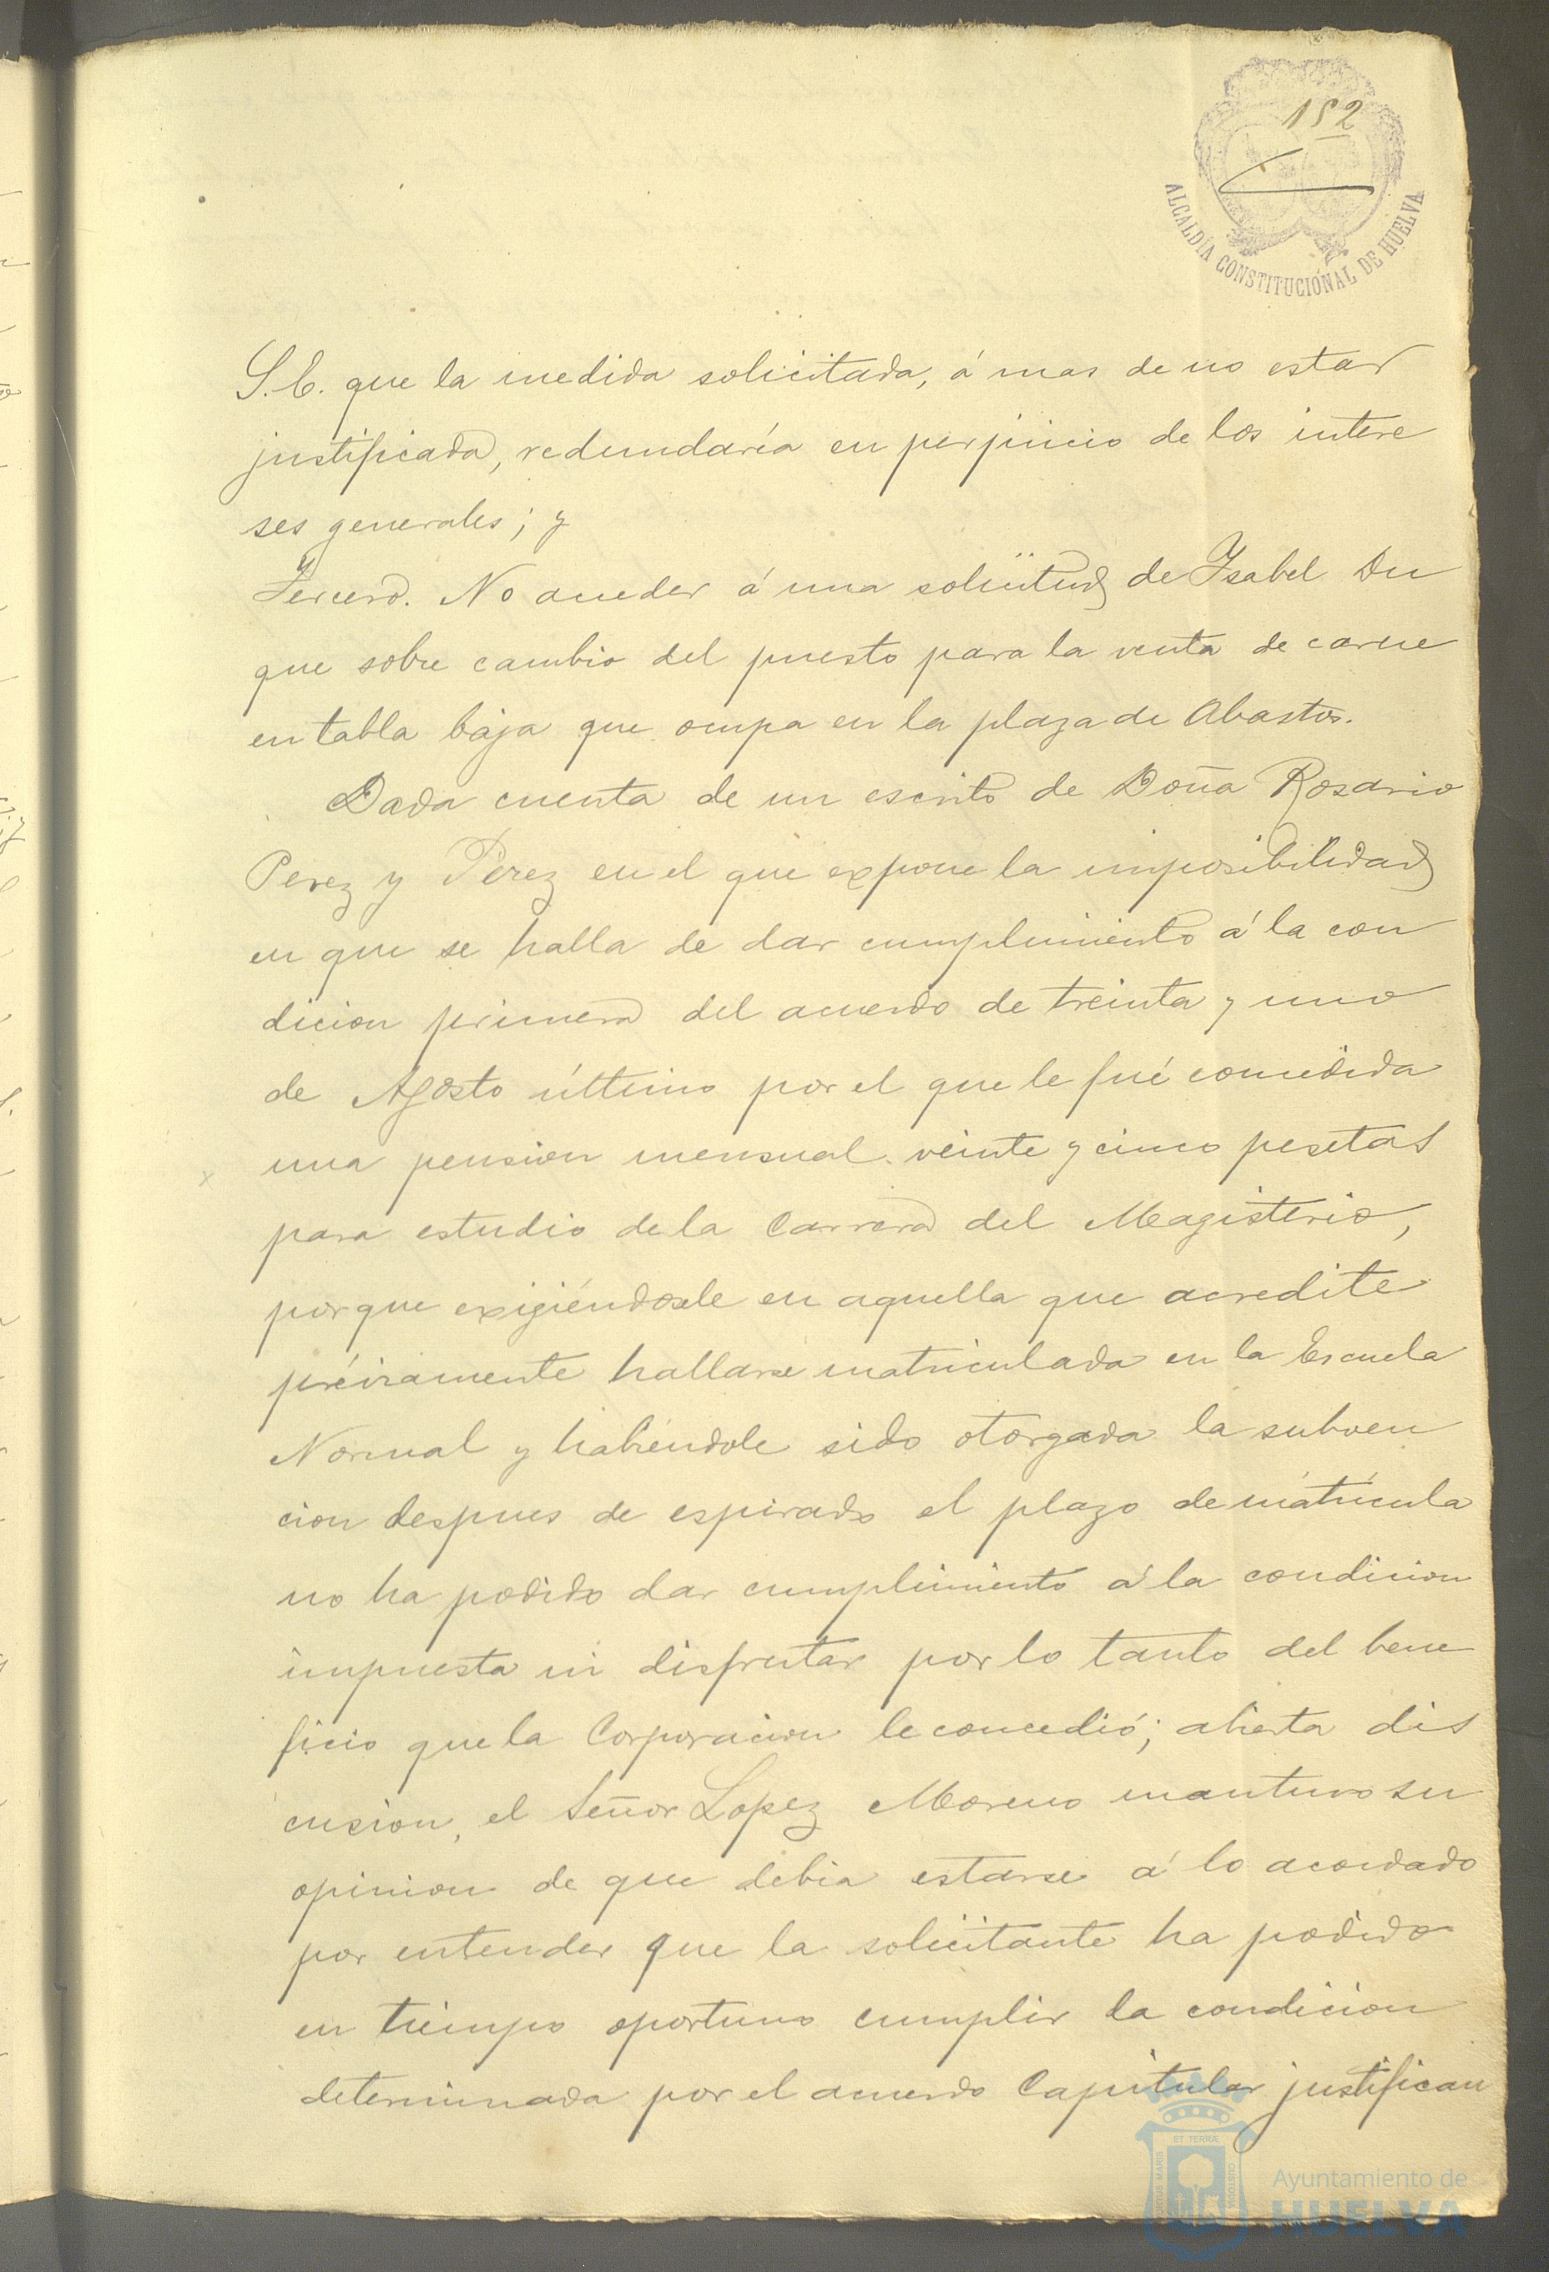 152
ALCALDÍA CONSTITUCIONAL DE HUELVA
S. E. que la medida solicitada, á mas de no estar
justificada, redundaría en perjuicio de los intere
ses generales; y
Tercero. No acceder á una solicitud de Ysabel Du
que sobre cambio del puesto para la venta de carne
en tabla baja que ocupa en la plaza de Abastos.
Dada cuenta de un escrito de Doña Rosario
Perez y Perez en el que expone la imposibilidad
en que se halla de dar cumplimiento á la con
dicion primera del acuerdo de treinta y uno
de Agosto último por el que le fué concedida
una pension mensual veinte y cinco pesetas
para estudio de la Carrera del Magisterio,
porque exigiéndosele en aquella que acredite
préviamente hallarse matriculada en la Escuela
Normal y habiéndole sido otorgada la subven
cion despues de espirado el plazo de matrícula
no ha podido dar cumplimiento á la condicion
impuesta ni disfrutar por lo tanto del bene
ficio que la Corporacion le concedió; abierta dis
cusion, el Señor Lopez Moreno mantuvo su
opinion de que debia estarse á lo acordado
por entender que la solicitante ha podido
en tiempo oportuno cumplir la condicion
determinada por el acuerdo Capitular justifican
Ayuntamiento de
HUELVA